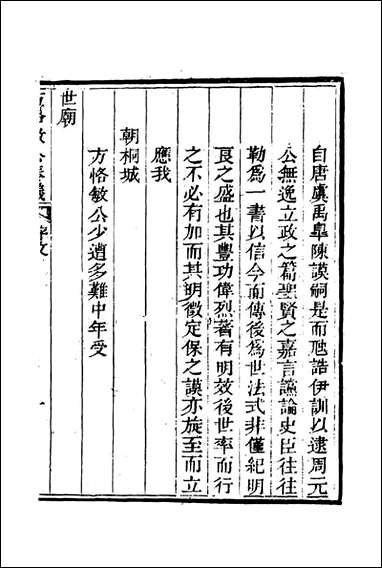 自唐虞禹皋陳謨嗣是而虺誥伊訓以逮周元
公無逸立政之篇聖賢之嘉言讜論史臣往往
勒為一書以信今而傳後為世法式非僅紀明
良之盛也其豐功偉烈著有明效後世率而行
之不必有加而其明徵定保之謨亦旋至而立
應我
朝桐城
方恪敏公少遭多難中年受
世廟
方恪敏公奏議
序文
一